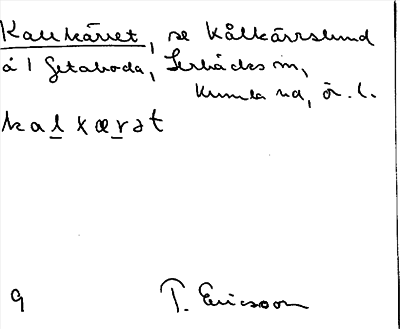 Kallkärret, se Kålkärrslund
å 1 Getaboda, Lerbäcks sn,
Kumla hd, ör. l.
kalkærət
9
T. Ericsson